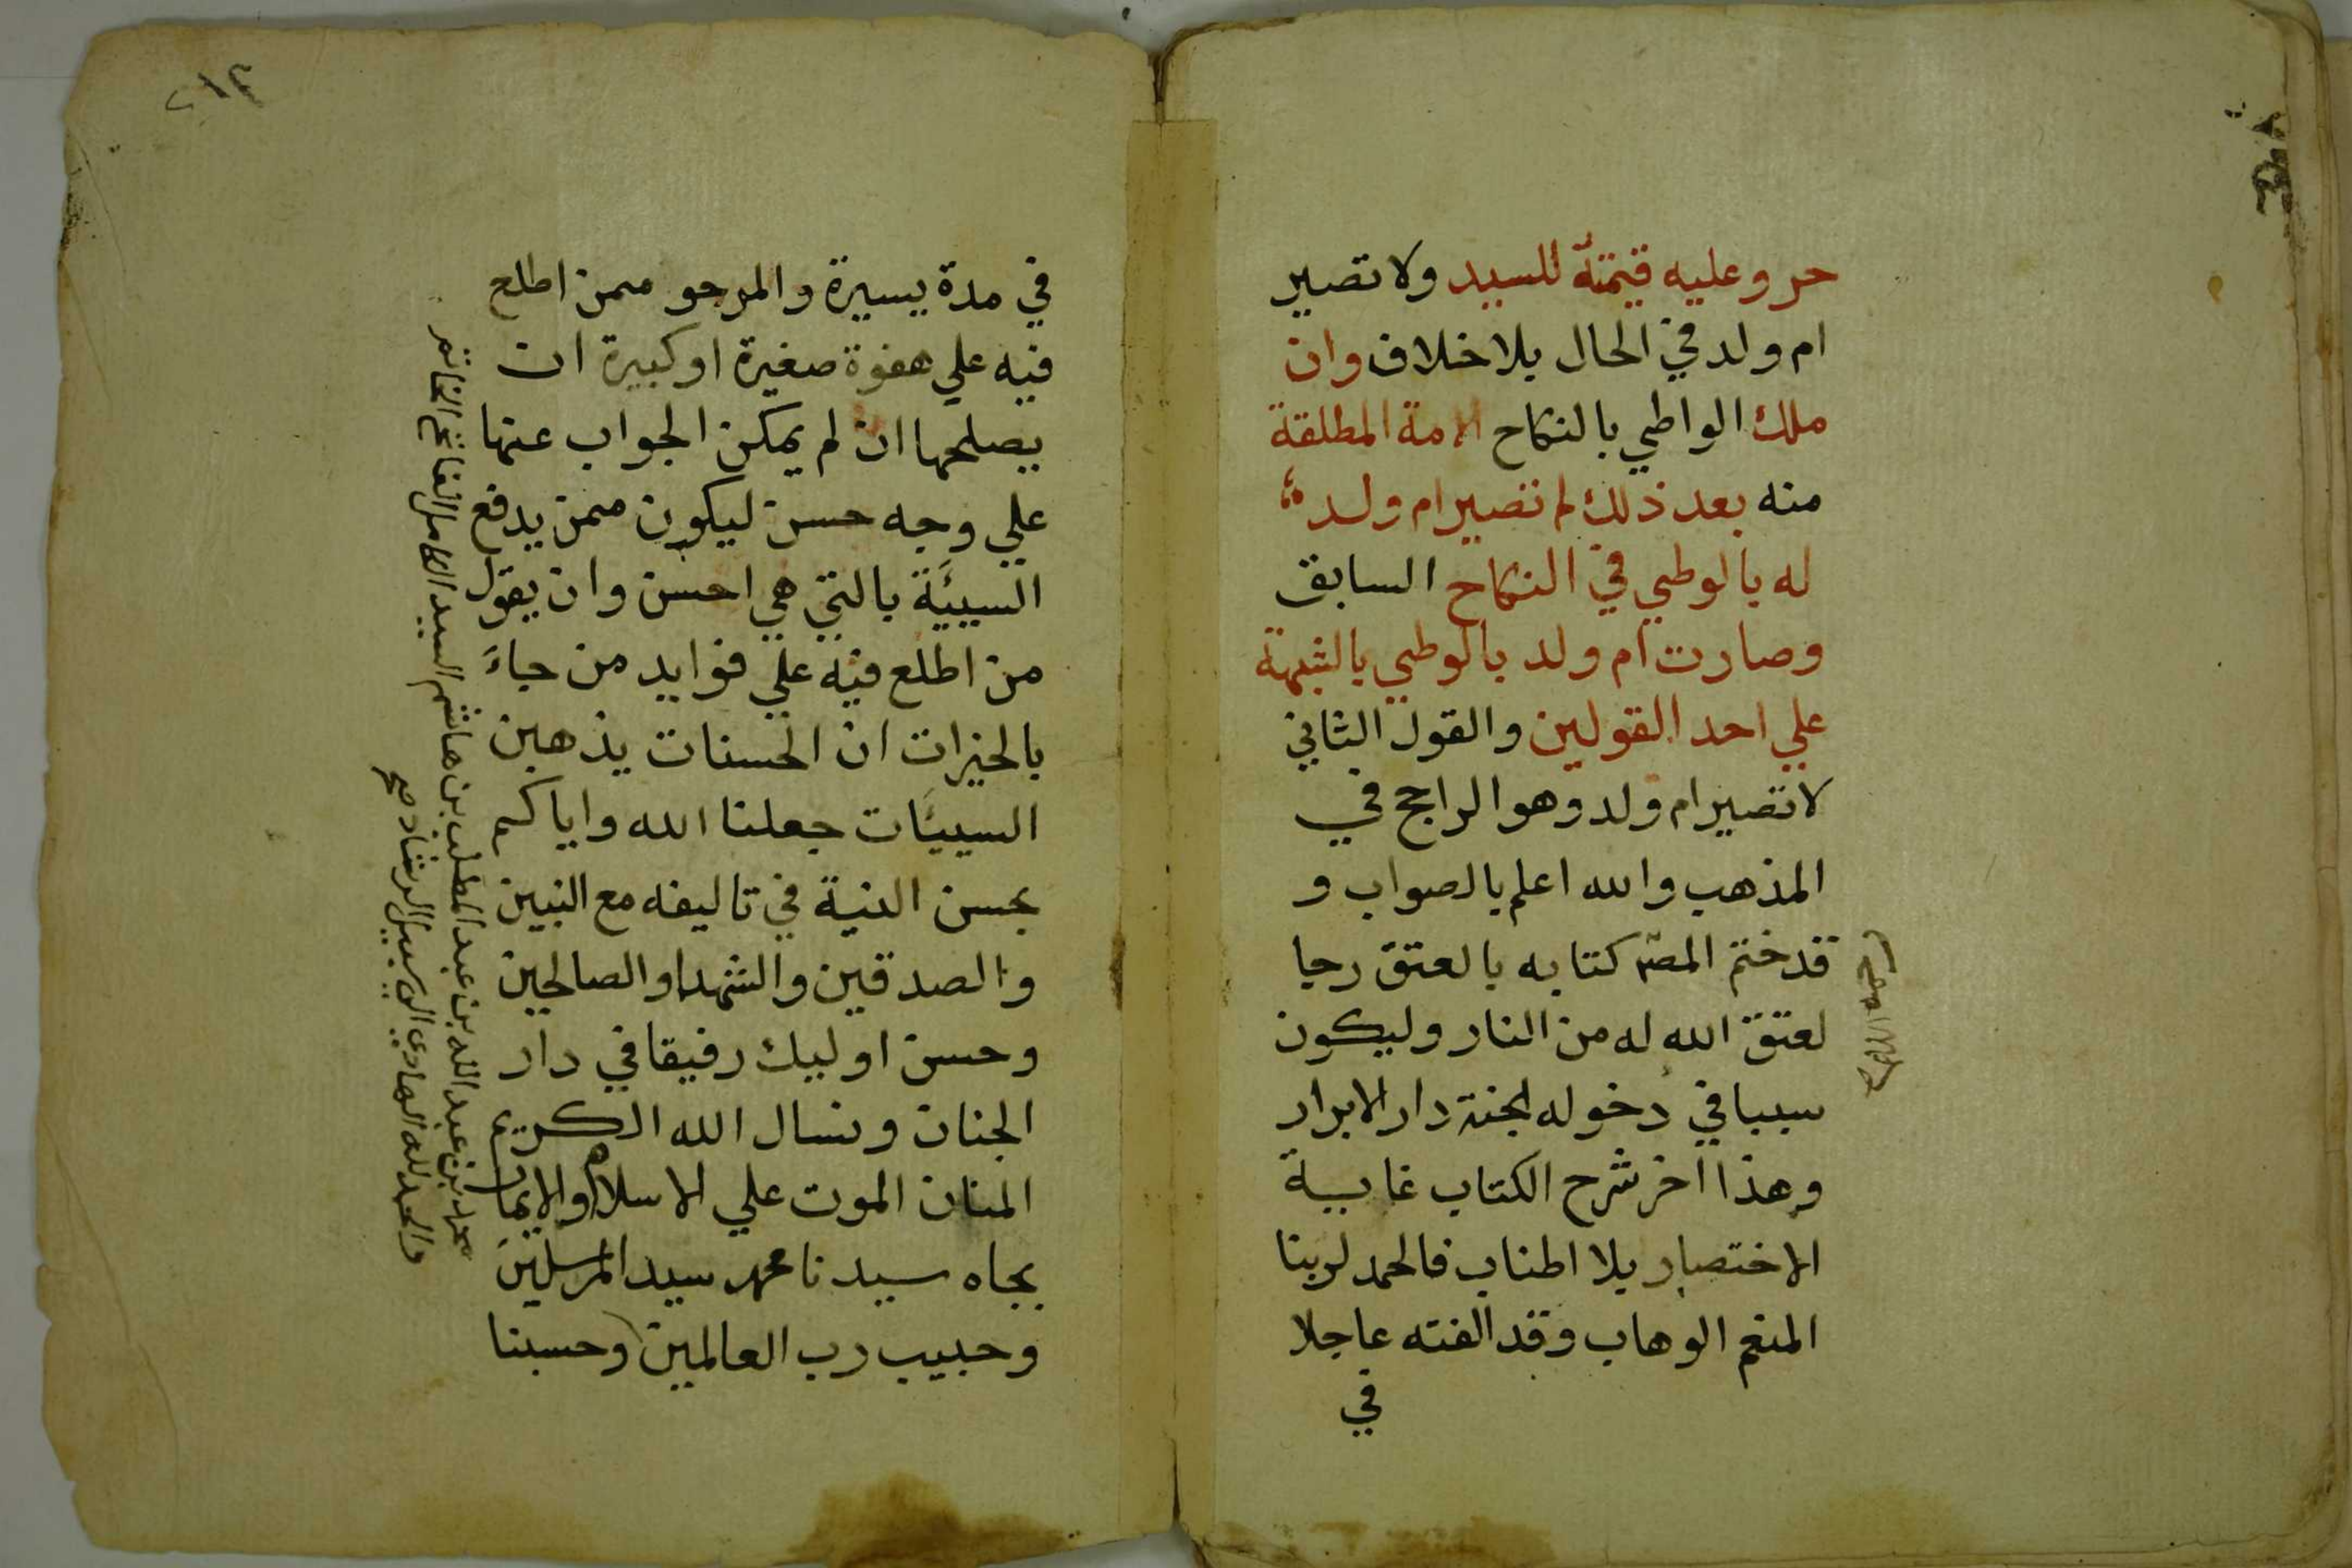 حر وعليه قيمته للسيد ولا تصير
ام ولد في الحال بلا خلاف وان
ملك الواطي بالنكاح الامة المطلقة
منه بعد ذلك لم تصير ام ولد
له بالوطي في النكاح السابق
وصارت ام ولد بالوطي بالشبهة
علي احد القولين والقول الثاني
لا تصير ام ولد وهو الراجح في
المذهب والله اعلم بالصواب و
قد ختم المصـ كتابه بالعتق رجا
لعتق الله له من النار وليكون
سببا في دخوله الجنة دار الابرار
وهذا اخر شرح الكتاب غاية
الاختصار بلا اطناب فالحمد لربنا
المنعم الوهاب وقد الفته عاجلا
في
٢١٢
في مدة يسيرة والمرجو ممن اطلع
فيه علي هفوة صغيرة او كبيرة ان
يصلحها ان لم يمكن الجواب عنها
علي وجه حسن ليكون ممن يدفع
السيئة بالتي هي احسن وان يقول
من اطلع فيه علي فوايد من جاء
بالخيرات ان الحسنات يذهبن
السيئات جعلنا الله واياكم
بحسن النية في تاليفه مع النبين
والصدقين والشهدا والصالحين
وحسن اوليك رفيقا في دار
الجنان ونسال الله الكريم
المنان الموت علي الاسلام والايمان
بجاه سيدنا محمد سيد المرسلين
وحبيب رب العالمين وحسبنا
محمد بن عبد الله بن عبد المطلب بن هاشم السيد الكامل الفاتح الخاتم
والحمد لله الهادي الي سبيل الرشاد صح